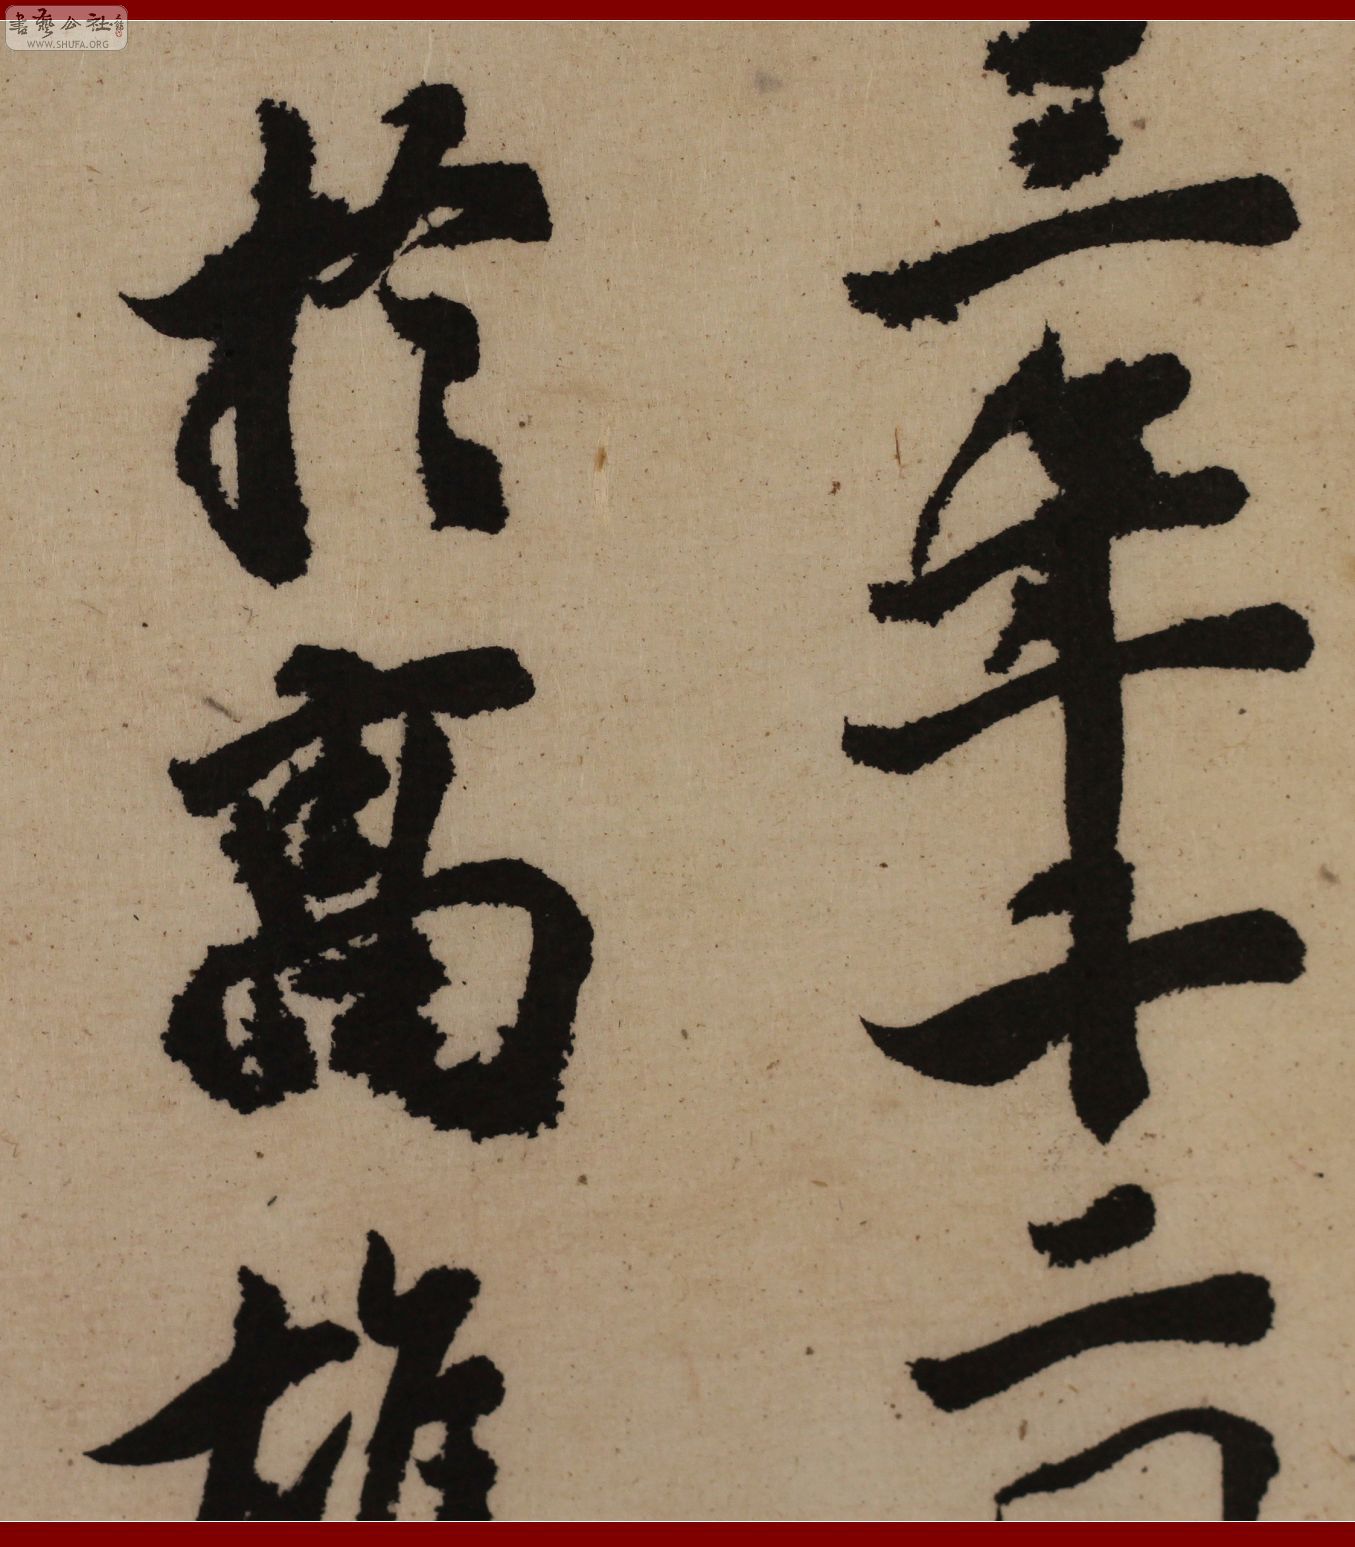 書藝公社
WWW.SHUFA.ORG
三年十二月
於高雄